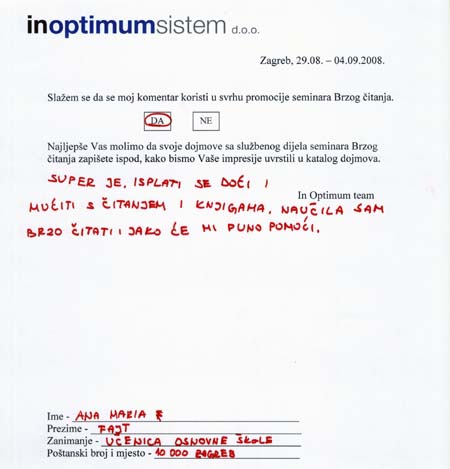 inoptimumsistem d.o.o.
Zagreb, 29.08. – 04.09.2008.
Slažem se da se moj komentar koristi u svrhu promocije seminara Brzog čitanja.
DA NE
Najljepše Vas molimo da svoje dojmove sa službenog dijela seminara Brzog
čitanja zapišete ispod, kako bismo Vaše impresije uvrstili u katalog dojmova.
SUPER JE, ISPLATI SE DOĆI I
In Optimum team
MUČITI S ČITANJEM I KNJIGAMA. NAUČILA SAM
BRZO ČITATI I JAKO ĆE MI PUNO POMOĆI.
Ime - ANA MARIA
Prezime - FAJT
Zanimanje - UČENICA OSNOVNE ŠKOLE
Poštanski broj i mjesto - 10 000 ZAGREB